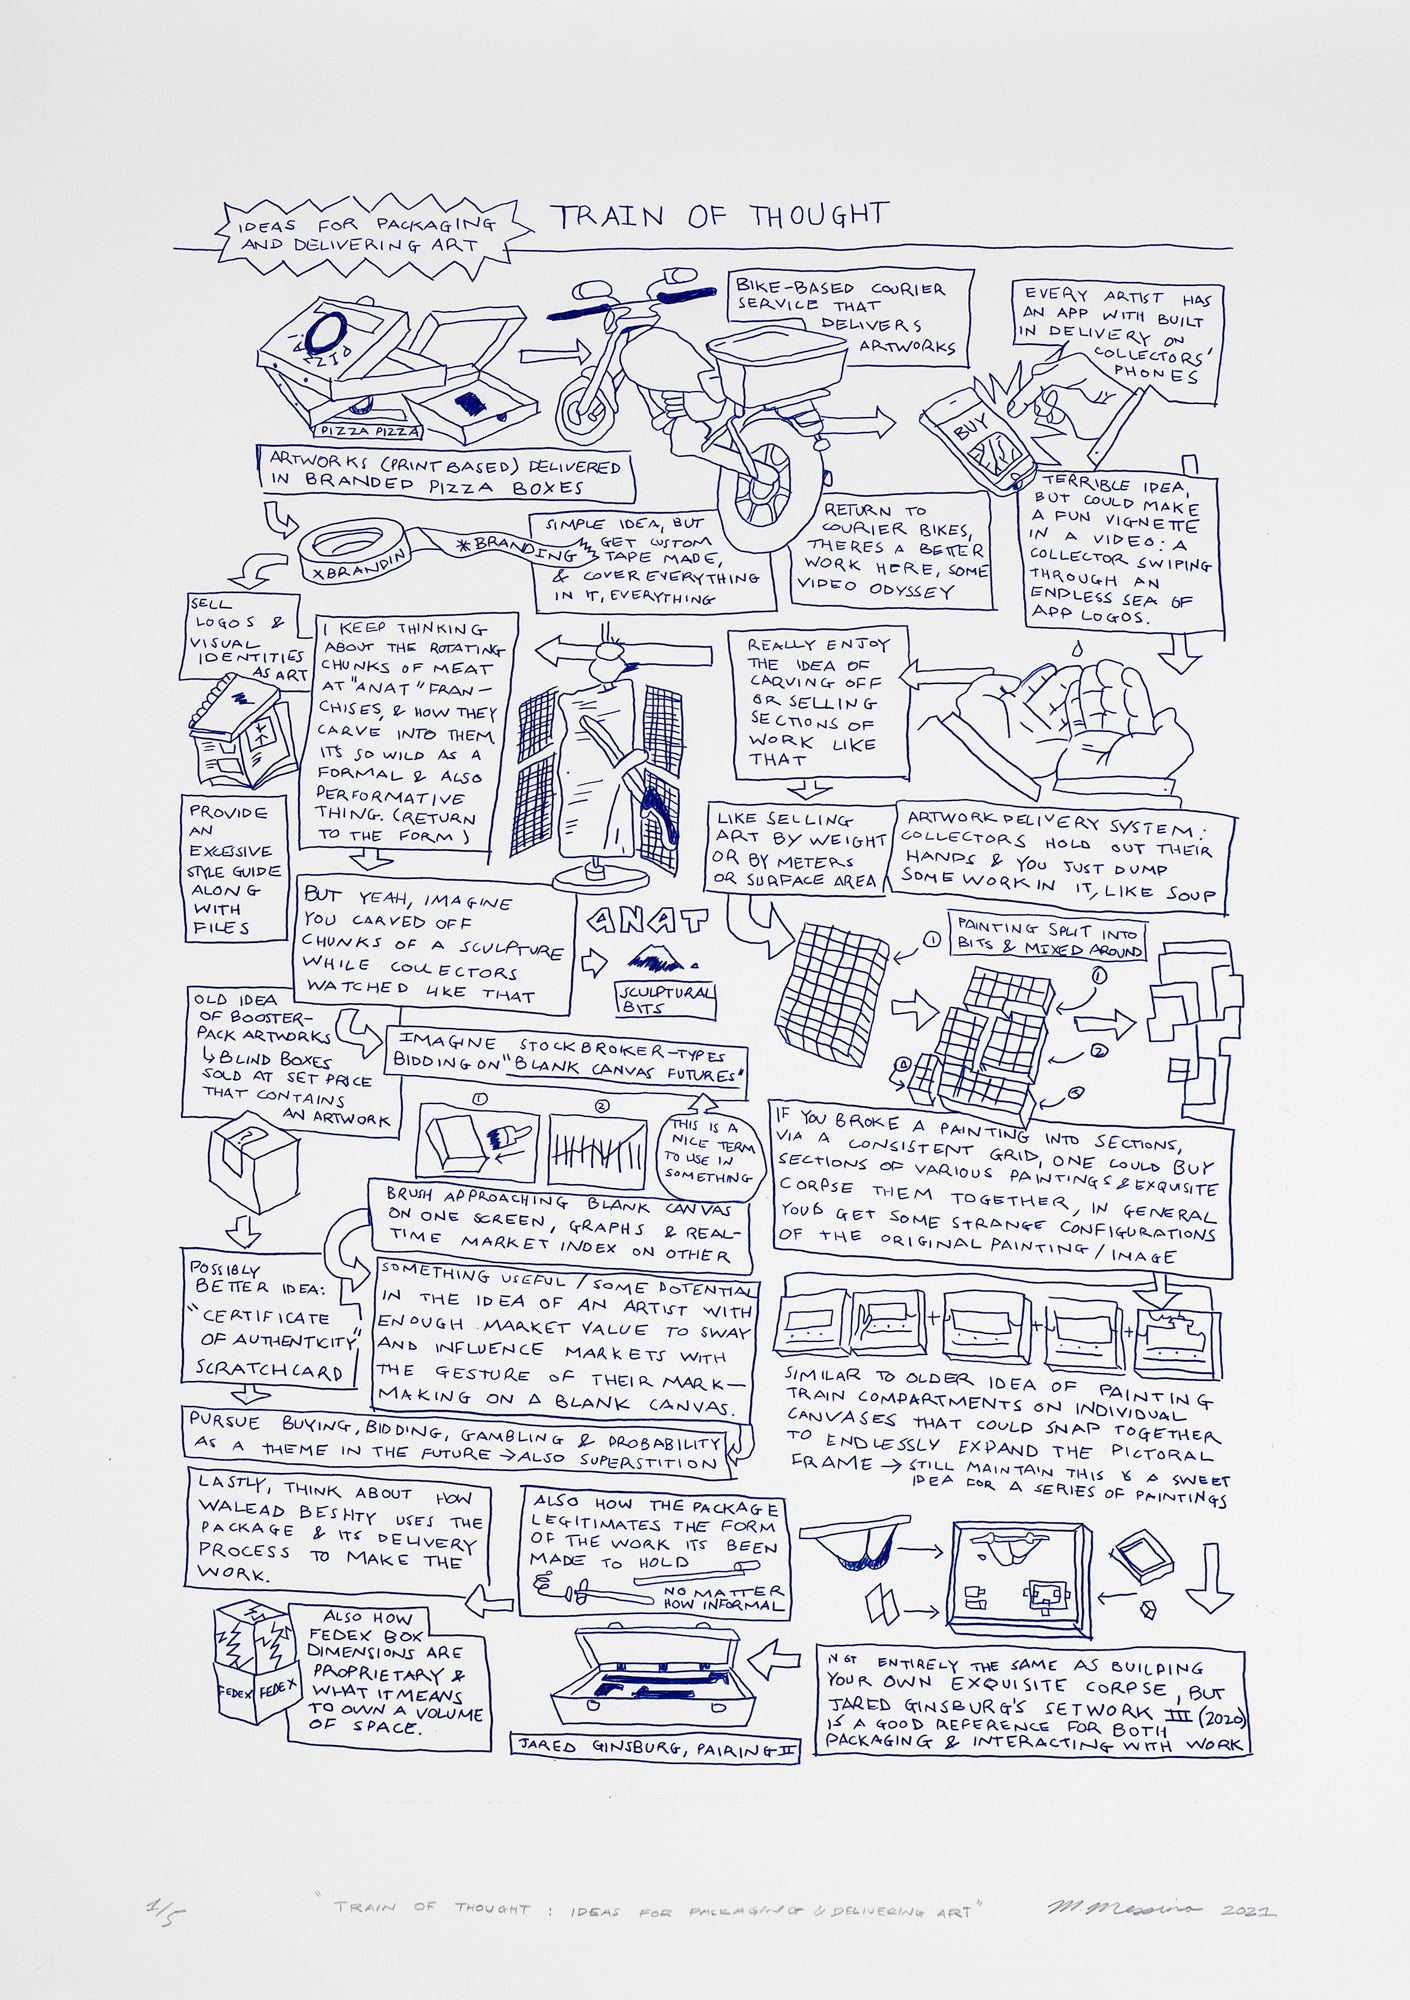 IDEAS FOR PACKAGING
AND DELIVERING ART
TRAIN OF THOUGHT
PIZZA
PIZZA PIZZA
ARTWORKS (PRINT BASED) DELIVERED
IN BRANDED PIZZA BOXES
BIKE-BASED COURIER
SERVICE THAT
DELIVERS
ARTWORKS
EVERY ARTIST HAS
AN APP WITH BUILT
IN DELIVERY ON
COLLECTORS'
PHONES
BUY
TERRIBLE IDEA,
BUT COULD MAKE
A FUN VIGNETTE
IN A VIDEO: A
COLLECTOR SWIPING
THROUGH AN
ENDLESS SEA OF
APP LOGOS.
RETURN TO
COURIER BIKES,
THERES A BETTER
WORK HERE, SOME
VIDEO ODYSSEY
XBRANDIN
*BRANDING
SIMPLE IDEA, BUT
GET CUSTOM
TAPE MADE,
& COVER EVERYTHING
IN IT, EVERYTHING
SELL
LOGOS &
VISUAL
IDENTITIES
AS ART
PROVIDE
AN
EXCESSIVE
STYLE GUIDE
ALONG
WITH
FILES
I KEEP THINKING
ABOUT THE ROTATING
CHUNKS OF MEAT
AT "ANAT" FRAN-
CHISES, & HOW THEY
CARVE INTO THEM
ITS SO WILD AS A
FORMAL & ALSO
PERFORMATIVE
THING. (RETURN
TO THE FORM)
REALLY ENJOY
THE IDEA OF
CARVING OFF
OR SELLING
SECTIONS OF
WORK LIKE
THAT
LIKE SELLING
ART BY WEIGHT
OR BY METERS
OR SURFACE AREA
ARTWORK DELIVERY SYSTEM:
COLLECTORS HOLD OUT THEIR
HANDS & YOU JUST DUMP
SOME WORK IN IT, LIKE SOUP
BUT YEAH, IMAGINE
YOU CARVED OFF
CHUNKS OF A SCULPTURE
WHILE COLLECTORS
WATCHED LIKE THAT
ANAT
SCULPTURAL
BITS
PAINTING SPLIT INTO
BITS & MIXED AROUND
1
1
2
OLD IDEA
OF BOOSTER-
PACK ARTWORKS
↳ BLIND BOXES
SOLD AT SET PRICE
THAT CONTAINS
AN ARTWORK
?
IMAGINE STOCKBROKER-TYPES
BIDDING ON "BLANK CANVAS FUTURES"
1
2
THIS IS A
NICE TERM
TO USE IN
SOMETHING
BRUSH APPROACHING BLANK CANVAS
ON ONE SCREEN, GRAPHS & REAL-
TIME MARKET INDEX ON OTHER
IF YOU BROKE A PAINTING INTO SECTIONS,
VIA A CONSISTENT GRID, ONE COULD BUY
SECTIONS OF VARIOUS PAINTINGS & EXQUISITE
CORPSE THEM TOGETHER, IN GENERAL
YOUD GET SOME STRANGE CONFIGURATIONS
OF THE ORIGINAL PAINTING / IMAGE
POSSIBLY
BETTER IDEA:
"CERTIFICATE
OF AUTHENTICITY"
SCRATCHCARD
SOMETHING USEFUL / SOME POTENTIAL
IN THE IDEA OF AN ARTIST WITH
ENOUGH MARKET VALUE TO SWAY
AND INFLUENCE MARKETS WITH
THE GESTURE OF THEIR MARK-
MAKING ON A BLANK CANVAS.
+ + + +
SIMILAR TO OLDER IDEA OF PAINTING
TRAIN COMPARTMENTS ON INDIVIDUAL
CANVASES THAT COULD SNAP TOGETHER
TO ENDLESSLY EXPAND THE PICTORAL
FRAME → STILL MAINTAIN THIS IS A SWEET
IDEA FOR A SERIES OF PAINTINGS
PURSUE BUYING, BIDDING, GAMBLING & PROBABILITY
AS A THEME IN THE FUTURE → ALSO SUPERSTITION
LASTLY, THINK ABOUT HOW
WALEAD BESHTY USES THE
PACKAGE & ITS DELIVERY
PROCESS TO MAKE THE
WORK.
ALSO HOW THE PACKAGE
LEGITIMATES THE FORM
OF THE WORK ITS BEEN
MADE TO HOLD
NO MATTER
HOW INFORMAL
FEDEX FEDEX
ALSO HOW
FEDEX BOX
DIMENSIONS ARE
PROPRIETARY &
WHAT IT MEANS
TO OWN A VOLUME
OF SPACE.
JARED GINSBURG, PAIRING II
NOT ENTIRELY THE SAME AS BUILDING
YOUR OWN EXQUISITE CORPSE, BUT
JARED GINSBURG'S SETWORK III (2020)
IS A GOOD REFERENCE FOR BOTH
PACKAGING & INTERACTING WITH WORK
1/5
"TRAIN OF THOUGHT : IDEAS FOR PACKAGING & DELIVERING ART"
M. Messina 2021